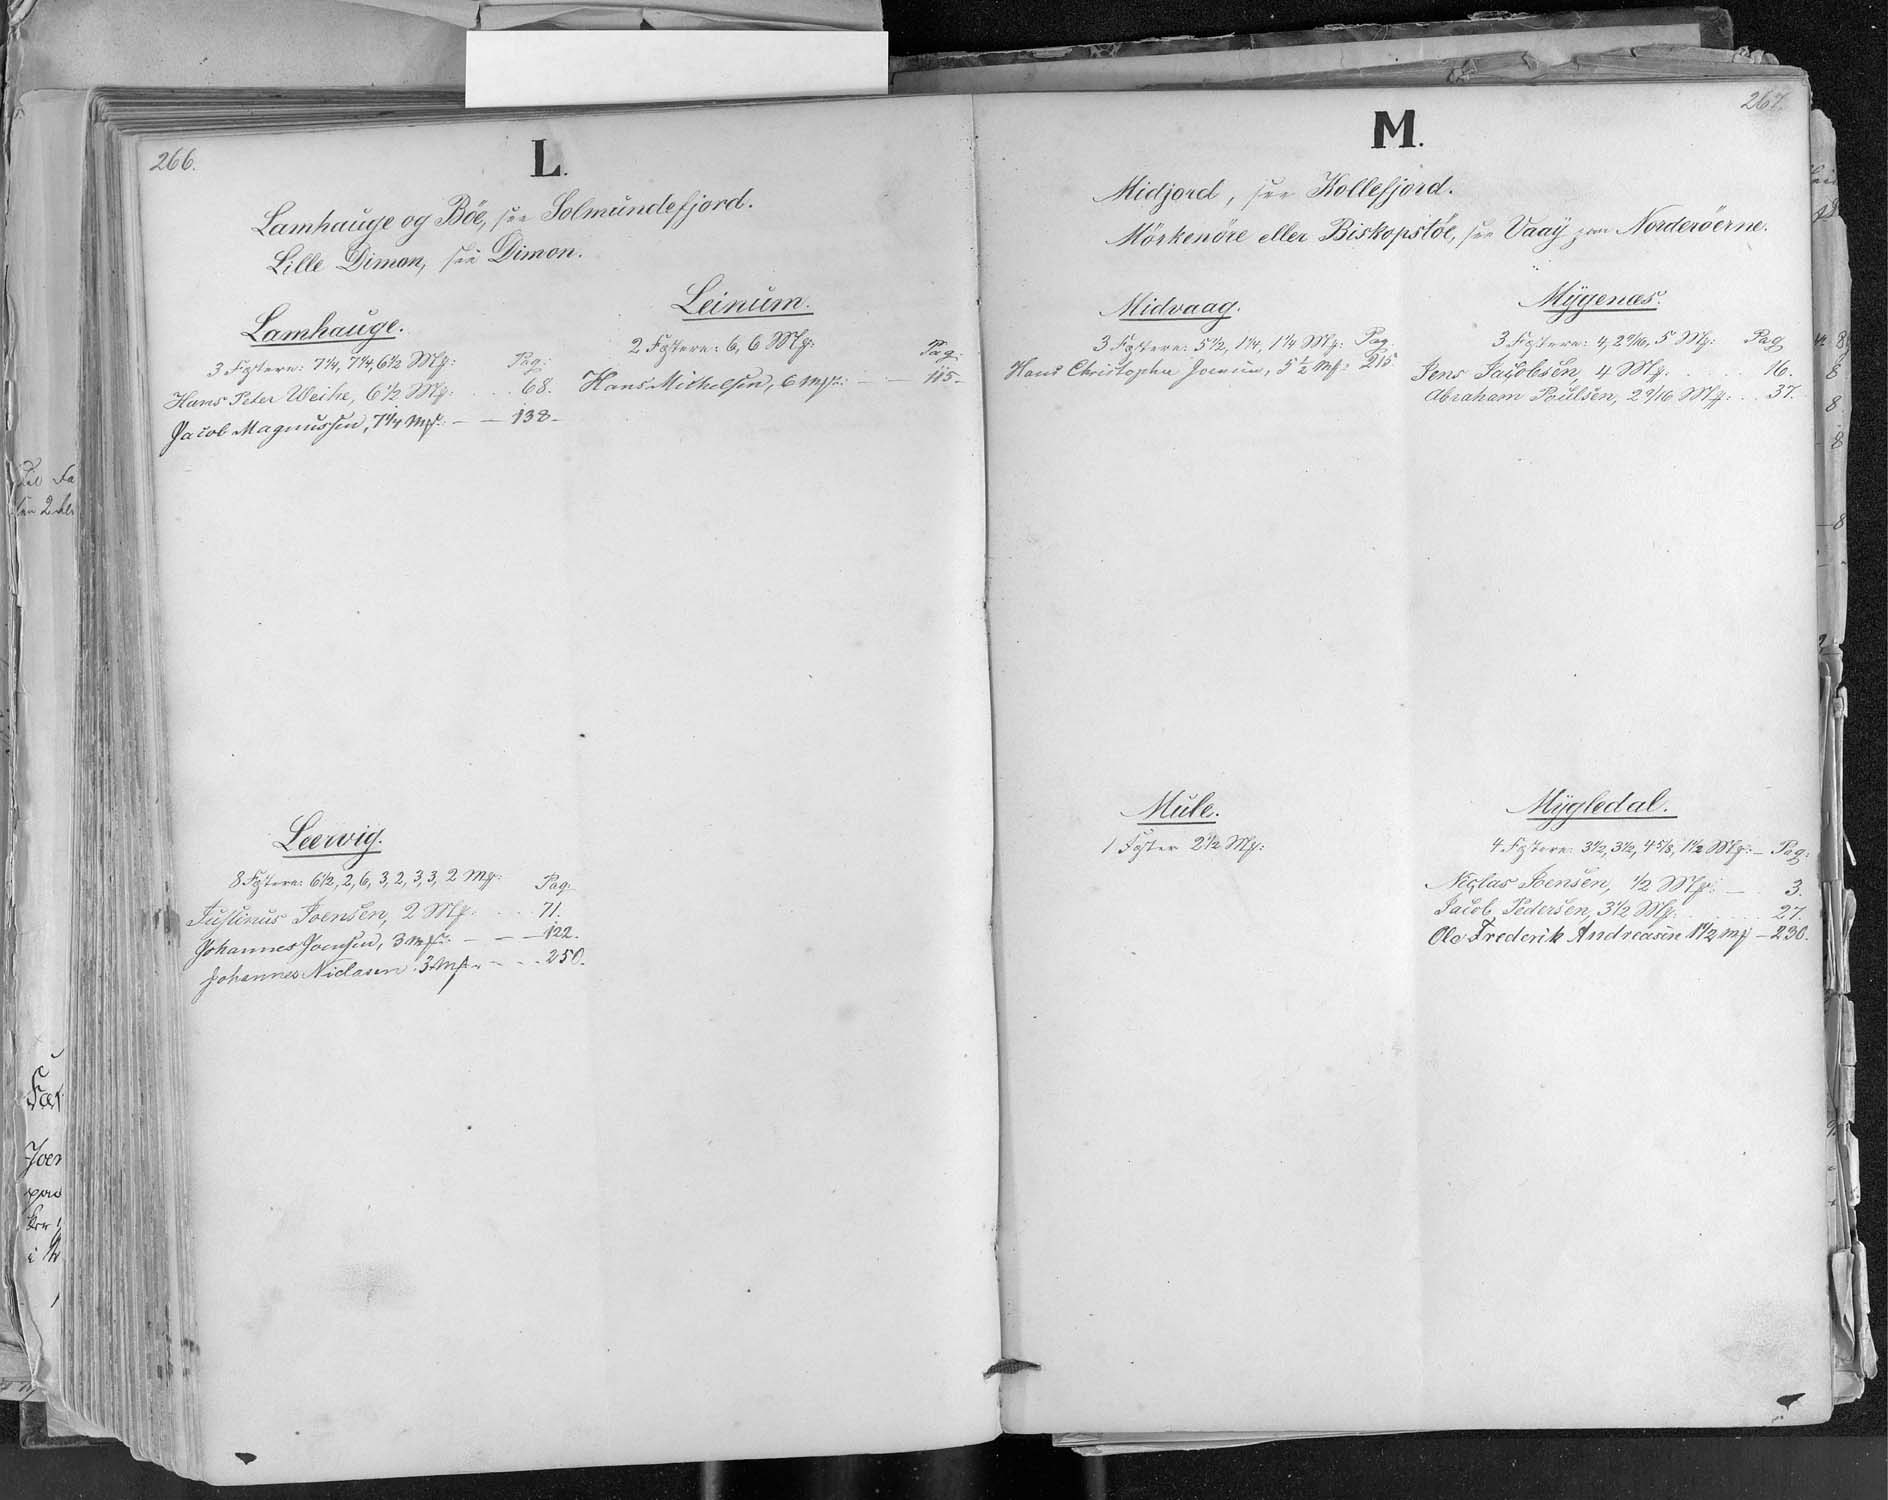 266.
L.
Lamhauge og Böe, see Solmundefjord.
Lille Dimon, see Dimon.
Lamhauge.
3 Fæstere: 7 1/4, 7 1/4, 6 1/2 Mg: Pag:
Hans Peter Weihe, 6 1/2 Mg: . . 68.
Jacob Magnussen, 7 1/4 Mg: — — 138 -
Leinum.
2 Fæstere: 6, 6 Mg: Pag:
Hans Michelsen, 6 Mg: — — 115 -
Leervig.
8 Fæstere: 6 1/2, 2, 6, 3, 2, 3, 3, 2 Mg: Pag:
Justinus Joensen, 2 Mg. . . . 71.
Johannes Joensen, 3 Mg: — — — 122.
Johannes Niclasen 3 Mg. - - . . 250.
267.
M.
Midjord, see Kollefjord.
Mörkenöre eller Biskopstöe, see Vaaÿ paa Norderöerne.
Midvaag.
3 Fæstere: 5 1/2, 1 1/4, 1 1/4 Mg: Pag.
Hans Christopher Joensen, 5 1/2 Mg: 215
Mÿgenæs.
3 Fæstere: 4, 2 9/16, 5 Mg: Pag
Jens Jacobsen, 4 Mg. . . . 16.
Abraham Poulsen, 2 9/16 Mg: . . 37.
Mule.
1 Fæster 2 1/2 Mg:
Mÿgledal.
4 Fæstere: 3 1/2, 3 1/2, 4 5/8, 1 1/2 Mg: — Pag:
Niclas Joensen, 1/2 Mg: — . 3.
Jacob Pedersen, 3 1/2 Mg: . . . 27.
Ole Frederik Andreasen 1 1/2 Mg — 230.